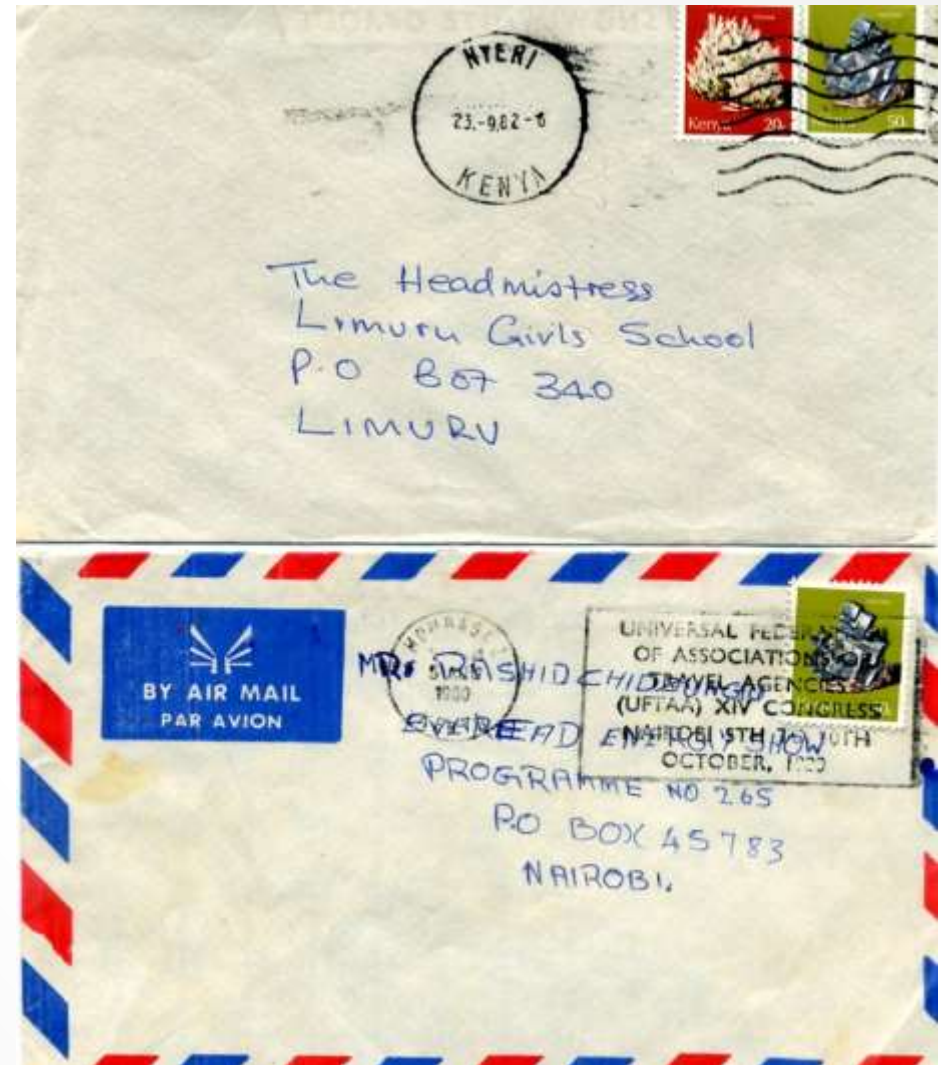 NYERI
23.-9.82-6
KENYA
Kenya 20c
Kenya 50c
The Headmistress
Limuru Girls School
P.O Box 340
LIMURU
BY AIR MAIL
PAR AVION
MOMBASA
1980
UNIVERSAL FEDERATION
OF ASSOCIATIONS OF
TRAVEL AGENCIES
(UFTAA) XIV CONGRESS
NAIROBI 5TH TO 10TH
OCTOBER, 1980
MR. RASHID
EVEREAD ENERGY SHOW
PROGRAMME NO 265
P.O BOX 45783
NAIROBI.